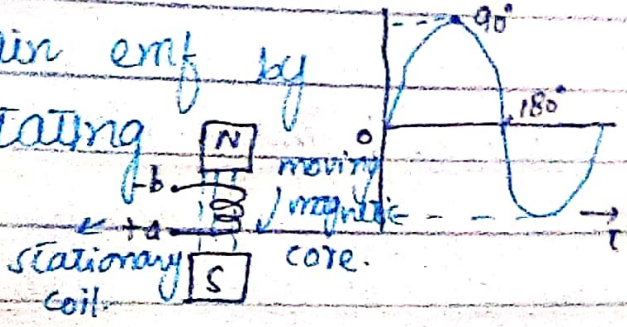 in emf by
tating
N
-b
+a
stationary
coil.
S
moving
magnetic
core.
90°
180°
0
t